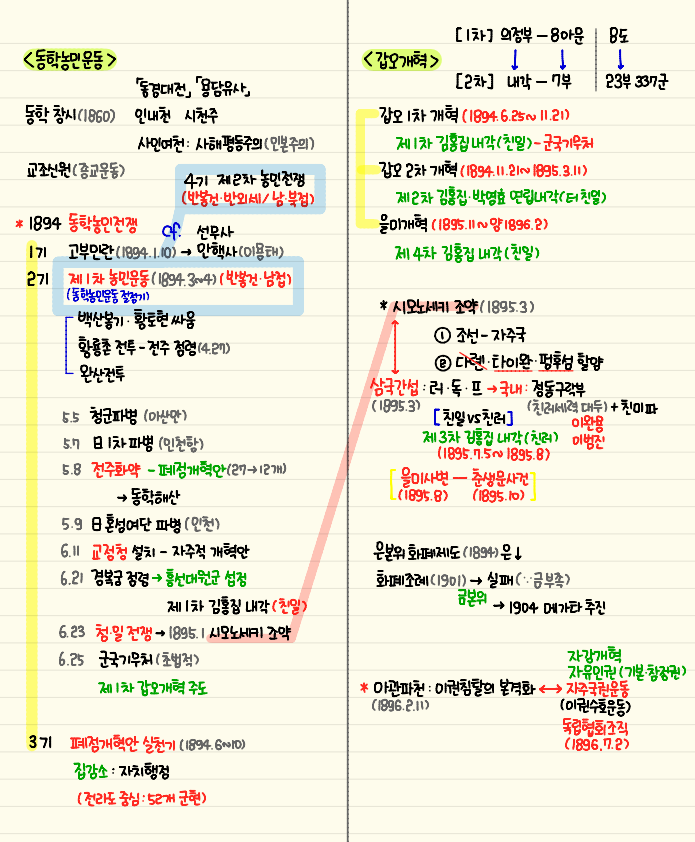 <동학농민운동>
「동경대전」 「용담유사」
동학 창시(1860) 인내천 시천주
사인여천 : 사해평등주의(인본주의)
교조신원(종교운동)
4기 제2차 농민전쟁
(반봉건·반외세/남·북접)
* 1894 동학농민전쟁
cf. 선무사
1기 고부민란(1894.1.10) → 안핵사(이용태)
2기 제1차 농민운동(1894.3~4)(반봉건·남접)
(동학농민운동 절정기)
백산봉기·황토현 싸움
황룡촌 전투 - 전주 점령(4.27)
완산전투
5.5 청군파병 (아산만)
5.7 日 1차 파병 (인천항)
5.8 전주화약 - 폐정개혁안(27→12개)
→ 동학해산
5.9 日 혼성여단 파병(인천)
6.11 교정청 설치 - 자주적 개혁안
6.21 경복궁 점령 → 흥선대원군 섭정
제1차 김홍집 내각(친일)
6.23 청·일 전쟁 → 1895.1 시모노세키 조약
6.25 군국기무처(초법적)
제1차 갑오개혁 주도
3기 폐정개혁안 실천기(1894.6~10)
집강소 : 자치행정
(전라도 중심 : 52개 군현)
[1차] 의정부 - 8아문 8도
<갑오개혁>
[2차] 내각 - 7부 23부 337군
갑오 1차 개혁 (1894.6.25~11.21)
제1차 김홍집 내각(친일) - 군국기무처
갑오 2차 개혁 (1894.11.21~1895.3.11)
제2차 김홍집·박영효 연립내각(더 친일)
을미개혁 (1895.11~양1896.2)
제4차 김홍집 내각(친일)
* 시모노세키 조약(1895.3)
① 조선 - 자주국
② 다롄·타이완·펑후섬 할양
삼국간섭 : 러·독·프 → 국내 : 정동구락부
(1895.3) (친러세력 대두) + 친미파
[친일 vs 친러] 이완용
제3차 김홍집 내각(친러) 이범진
(1895.7.5~1895.8)
[을미사변 — 춘생문사건]
(1895.8) (1895.10)
은본위 화폐제도(1894) 은↓
화폐조례(1901) → 실패(∵금부족)
금본위 → 1904 메가타 추진
자강개혁
자유민권(기본·참정권)
* 아관파천 : 이권침탈의 본격화 ↔ 자주국권운동
(1896.2.11) (이권수호운동)
독립협회조직
(1896.7.2)